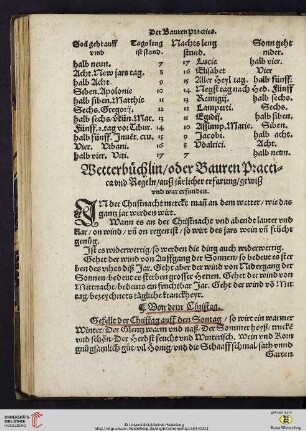 Der Bauren Practica.
Soñ gehtauff Tags leng Nachts leng Sonn geht
vnd ist stund. Stund. nider.
halb neun. 7 17 Lucia halb vier.
Acht. New jars tag. 8 16 Elisabet Vier
Halb Acht. 9 15 Aller Heyl. tag halb fünff.
Siben. Apolonie 10 14 Negst tag nach Hed. Fünff
halb siben. Matthie 11 13 Remigij. halb sechs.
Sechs. Gregorij. 12 12 Lamperti Sechs.
11 Egidij. halb siben.
10 Assump. Marie. Siben.
9 Jacobi. halb acht.
Vier. Vrbani. 16 8 Vdalrici. Acht.
halb vier. Viti. 17 7 halb neun.
Wetterbüchlin/oder Bauren Practi-
ca vnd Regeln/auß järlicher erfarung/gewiß
vnd war erfunden.
IN der Christnacht merckt man an dem wetter/ wie das
gantz jar werden würt.
Wann es an der Christnacht vnd abendt lauter vnd
klar/on wind/ vñ on regen ist/ so wirt des jars wein vñ frücht
genůg.
Ist es widerwertig/ so werden die ding auch widerwertig.
Gehet der wind von Auffgang der Sonnen/ so bedeut es ster
ben des vihes diß Jar. Gehet aber der wind von Nidergang der
Sonnen/ bedeut es sterben grosser Herren. Gehet der wind von
Mitnacht/ bedeute ein fruchtbar Jar. Gehet der wind vō Mit
tag/ bezeychnets tägliche kranckheyt.
¶ Von dem Christag.
Gefelt der Christag auff den Sontag/ so wirt ein warmer
Winter/ Der Glentz warm vnd naß/ Der Sommer heyß/ trucken
vnd schön/ Der Herbst feucht vnd Winterisch. Wein vnd Korn
gnůgsam/ vil Honig/ vnd die Schaaff schmal/ satt vnnd
Garten
UNIVERSITÄTS-
BIBLIOTHEK
HEIDELBERG
© Universitätsbibliothek Heidelberg